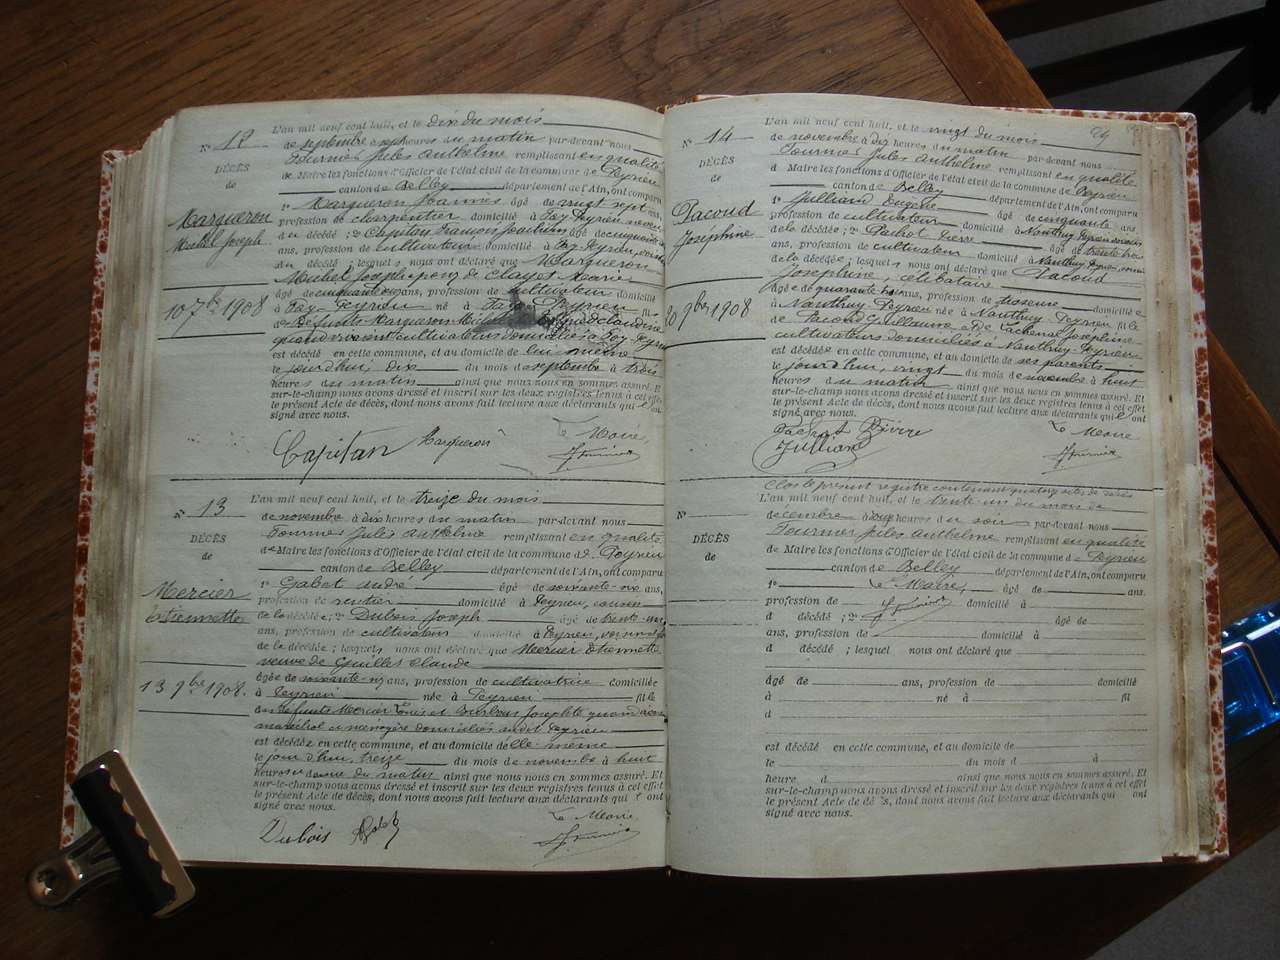 N° 12
DÉCÈS
de
Marqueron
Michel Joseph
10 7bre 1908
L'an mil neuf cent huit, et le dix du mois
de septembre à heures du matin par-devant nous
Fournier Jules Anthelme remplissant en qualité
de Maire les fonctions d'Officier de l'état civil de la commune de Peyrieu
canton de Belley département de l'Ain, ont comparu
1° Marqueron Joannès âgé de vingt sept ans,
profession de charpentier domicilié à Fay-Peyrieu neveu
du décédé ; 2° Capitan François âgé de
ans, profession de cultivateur domicilié à Fay-Peyrieu, voisin
du décédé ; lesquels nous ont déclaré que Marqueron
Michel Joseph époux de Clayet Marie
âgé de cinquante ans, profession de cultivateur domicilié
à Fay-Peyrieu né à Fay-Peyrieu fils
de défunts Marqueron Michel
quand vivaient cultivateurs domiciliés à Fay-Peyrieu
est décédé en cette commune, et au domicile de lui-même
le jourd'hui, dix du mois de septembre à trois
heures du matin ainsi que nous nous en sommes assuré. Et
sur-le-champ nous avons dressé et inscrit sur les deux registres tenus à cet effet
le présent Acte de décès, dont nous avons fait lecture aux déclarants qui l'ont
signé avec nous.
Capitan Marqueron Le Maire,
J Fournier
N° 13
DÉCÈS
de
Mercier
Etiennette
13 9bre 1908.
L'an mil neuf cent huit, et le treize du mois
de novembre à dix heures du matin par-devant nous
Fournier Jules Anthelme remplissant en qualité
de Maire les fonctions d'Officier de l'état civil de la commune de Peyrieu
canton de Belley département de l'Ain, ont comparu
1° Gabet André âgé de soixante-six ans,
profession de rentier domicilié à Peyrieu, cousin
de la décédée ; 2° Dubois Joseph âgé de trente
ans, profession de cultivateur domicilié à Peyrieu, voisin
de la décédée ; lesquels nous ont déclaré que Mercier Etiennette
veuve de Guillet Claude
âgée de soixante ans, profession de cultivatrice domiciliée
à Peyrieu née à Peyrieu fille
de défunts Mercier Louis et Josephte quand vivaient
maréchal et ménagère domiciliés audit Peyrieu
est décédée en cette commune, et au domicile d'elle-même
le jourd'hui, treize du mois de novembre à huit
heures du matin ainsi que nous nous en sommes assuré. Et
sur-le-champ nous avons dressé et inscrit sur les deux registres tenus à cet effet
le présent Acte de décès, dont nous avons fait lecture aux déclarants qui l'ont
signé avec nous.
Dubois AGabet Le Maire
J Fournier
N° 14
DÉCÈS
de
Pacoud
Joséphine
20 9bre 1908
L'an mil neuf cent huit, et le vingt du mois
de novembre à dix heures du matin par-devant nous
Fournier Jules Anthelme remplissant en qualité
d Maire les fonctions d'Officier de l'état civil de la commune de Peyrieu
canton de Belley département de l'Ain, ont comparu
1° Jullian Eugène âgé de cinquante ans,
profession de cultivateur domicilié à Nanthuy-Peyrieu voisin
de la décédée ; 2° Pachot Pierre âgé de trente-trois
ans, profession de cultivateur domicilié à Nanthuy-Peyrieu, voisin
de la décédée ; lesquels nous ont déclaré que Pacoud
Josephine, célibataire
âgée de quarante ans, profession de tisseuse domiciliée
à Nanthuy-Peyrieu née à Nanthuy-Peyrieu fille
de Pacoud Guillaume et de Lachenal Josephine
cultivateurs domiciliés à Nanthuy-Peyrieu
est décédée en cette commune, et au domicile de ses parents
le jourd'hui, vingt du mois de novembre à huit
heures du matin ainsi que nous nous en sommes assuré. Et
sur-le-champ nous avons dressé et inscrit sur les deux registres tenus à cet effet
le présent Acte de décès, dont nous avons fait lecture aux déclarants qui l'ont
signé avec nous.
Pachot Pierre Le Maire
Jullian J Fournier
N°
DÉCÈS
de
Clos le présent registre contenant quatorze actes de décès
L'an mil neuf cent huit, et le trente-un du mois de
décembre à heures du soir par-devant nous
Fournier Jules Anthelme remplissant en qualité
de Maire les fonctions d'Officier de l'état civil de la commune de Peyrieu
canton de Belley département de l'Ain, ont comparu
1° Le Maire, âgé de ans,
profession de J Fournier domicilié à
d décédé ; 2° âgé de
ans, profession de domicilié à
d décédé ; lesquel nous ont déclaré que
âgé de ans, profession de domicilié
à né à fil
d
est décédé en cette commune, et au domicile de
le du mois d à
heure d ainsi que nous nous en sommes assuré. Et
sur-le-champ nous avons dressé et inscrit sur les deux registres tenus à cet effet
le présent Acte de décès, dont nous avons fait lecture aux déclarants qui ont
signé avec nous.